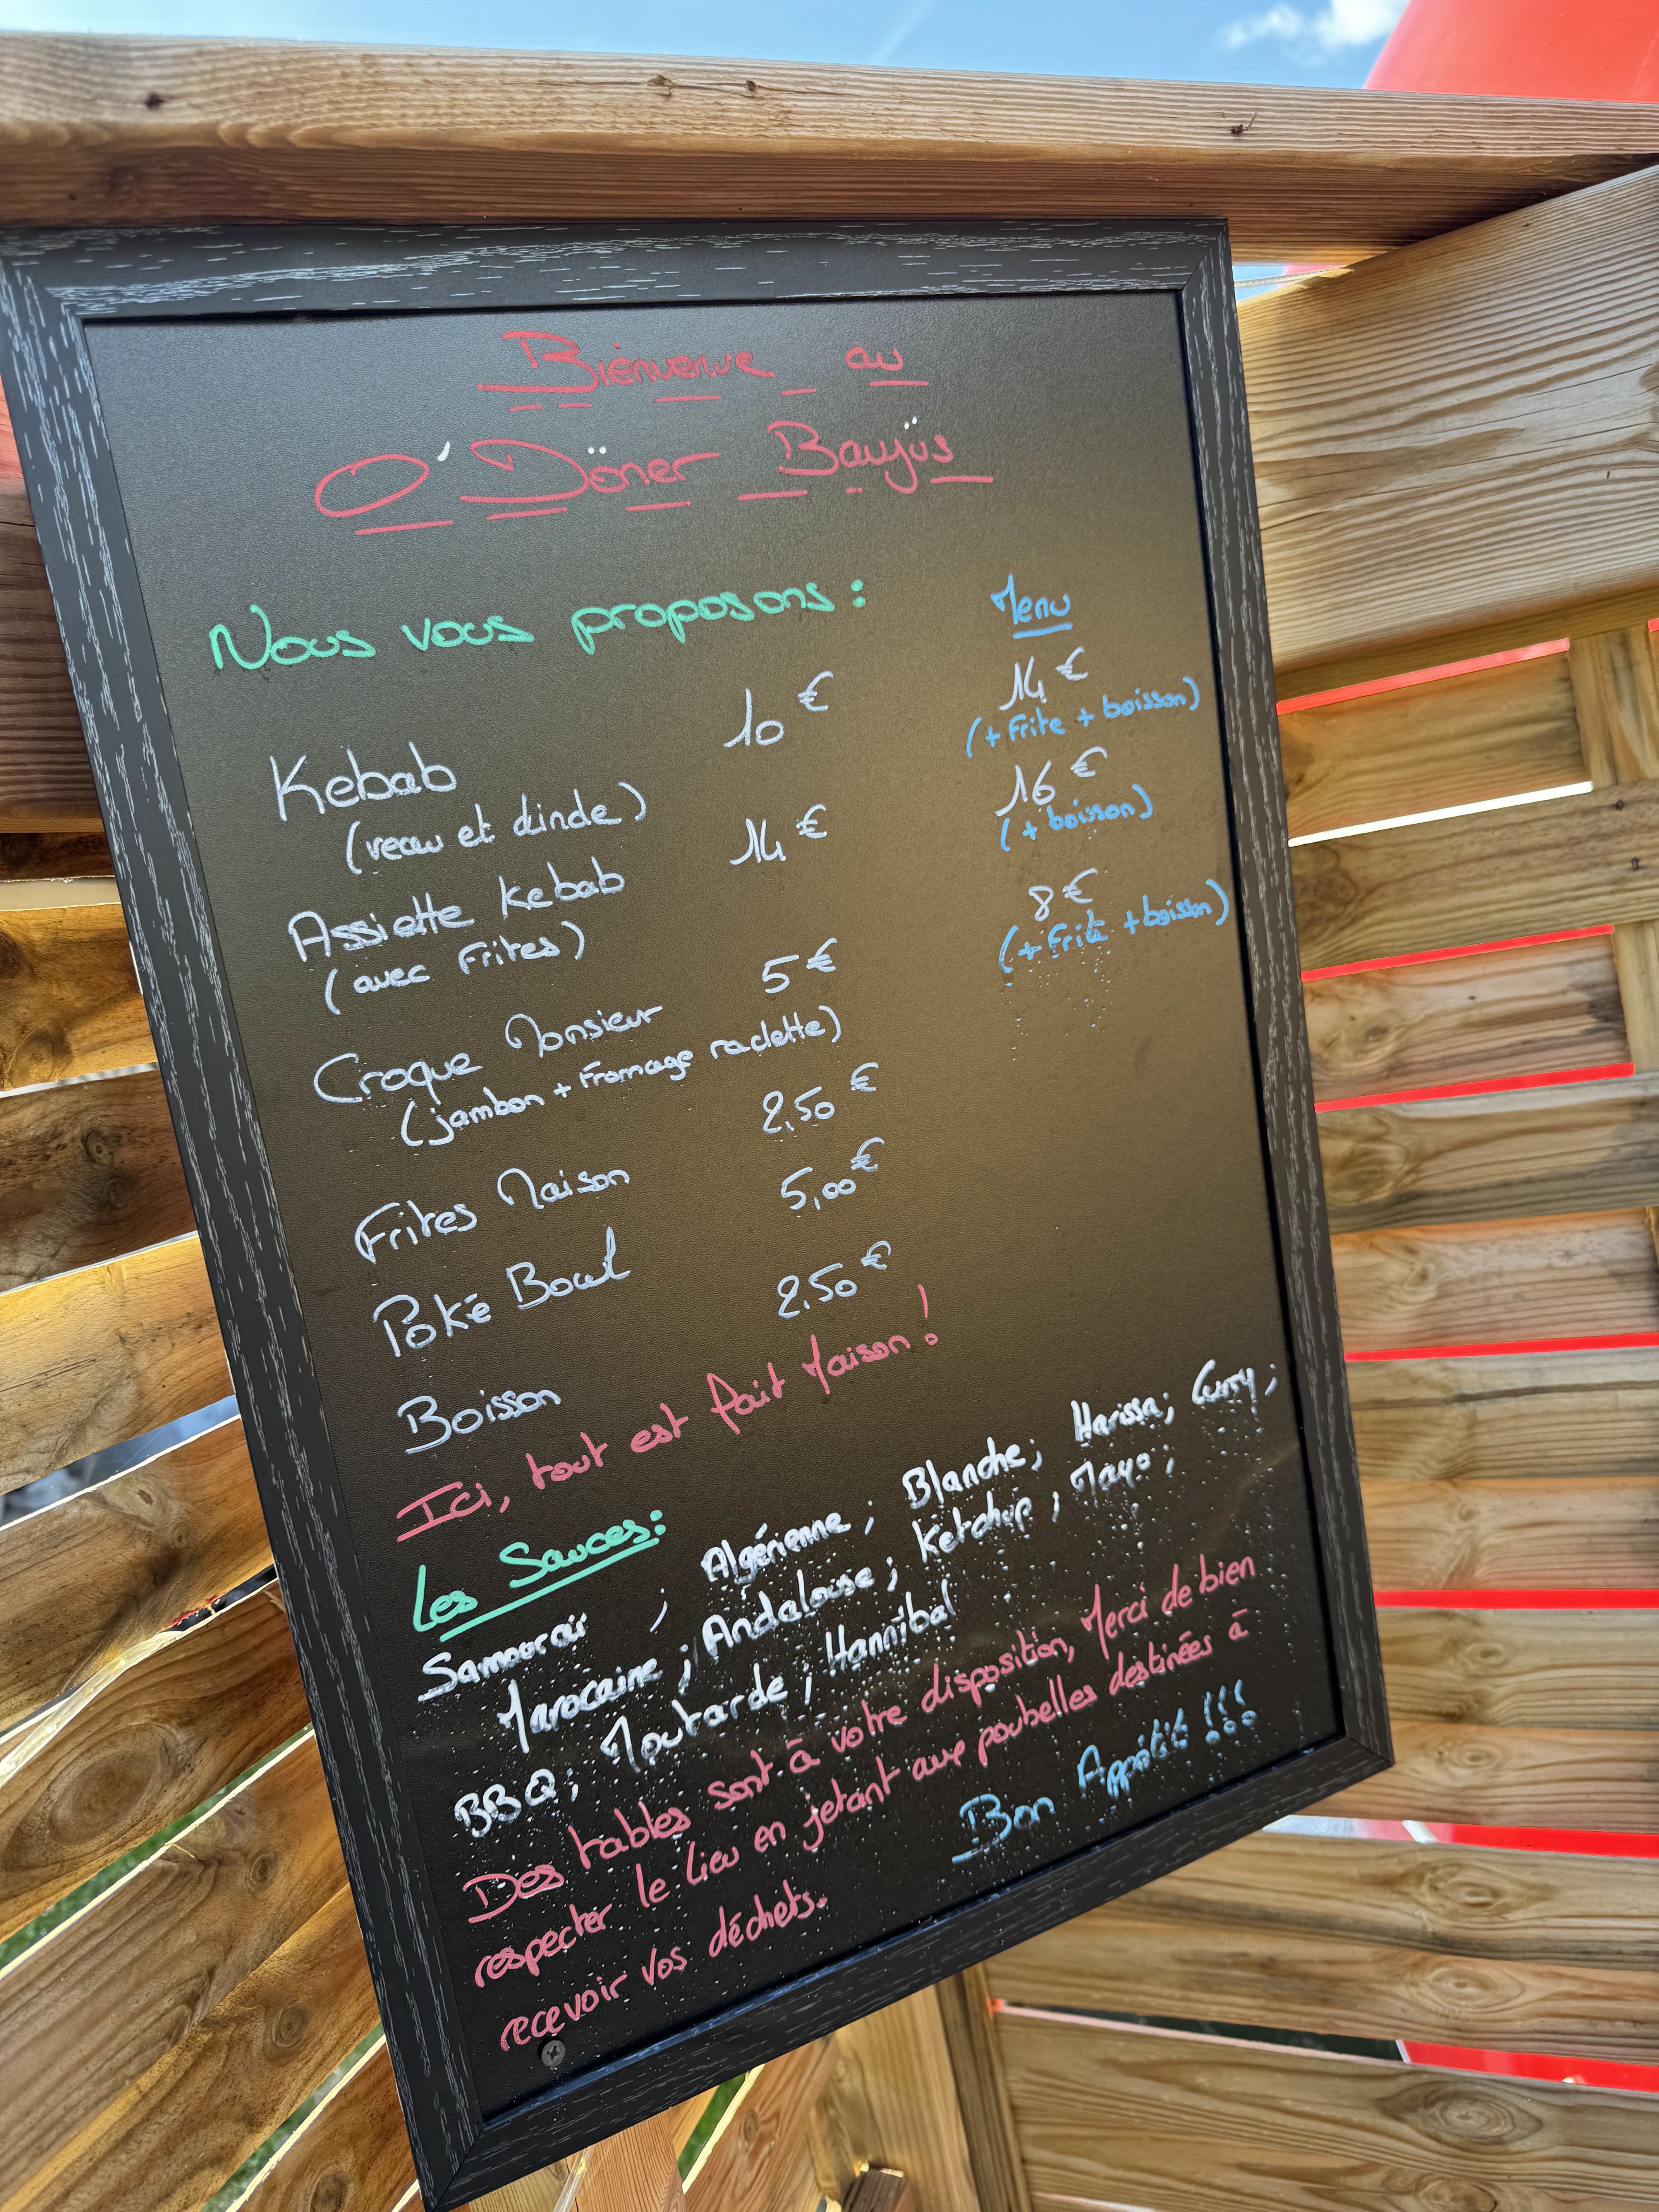 Bienvenue au
O' Döner Baujüs
Nous vous proposons :
Menu
Kebab 10 € 14 €
(veau et dinde) (+ Frite + boisson)
Assiette Kebab 14 € 16 €
(avec Frites) (+ boisson)
Croque Monsieur 5 € 8 €
(jambon + Fromage raclette) (+ Frite + boisson)
Frites Maison 2,50 €
Poké Bowl 5,00 €
Boisson 2,50 €
Ici, tout est fait Maison !
Les Sauces :
Samouraï ; Algérienne ; Blanche ; Harissa ; Curry ;
Marocaine ; Andalouse ; Ketchup ; Mayo ;
BBQ ; Moutarde ; Hannibal
Des tables sont à votre disposition, Merci de bien
respecter le lieu en jetant aux poubelles destinées à
recevoir vos déchets.
Bon Appétit !!!